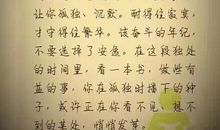 让你孤独、沉默。耐得住寂寞，
才守得住繁华。该奋斗的年纪，
不要选择了安逸。在这段独处
的时间里，看一本书，做些有
益的事，你在孤独时播下的种
子，或许正在你看不见、想不
到的某处，悄悄发芽。